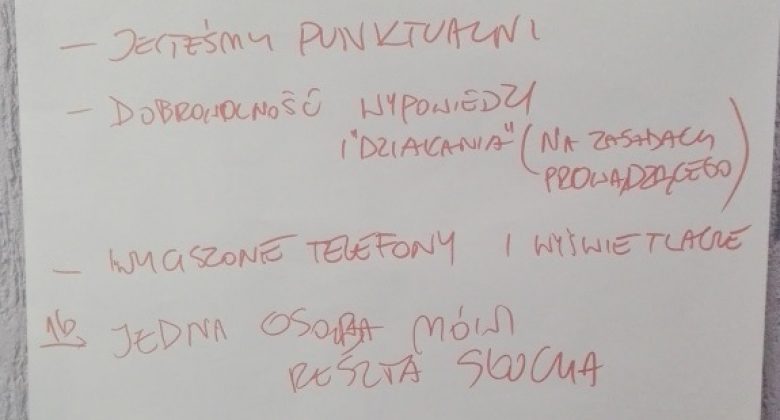 — JESTEŚMY PUNKTUALNI
— DOBROWOLNOŚĆ WYPOWIEDZI
I "DZIAŁANIA" (NA ZASADACH
PROWADZĄCEGO)
— WYCISZONE TELEFONY I WYŚWIETLACZE
16 JEDNA OSOBA MÓWI
RESZTA SŁUCHA